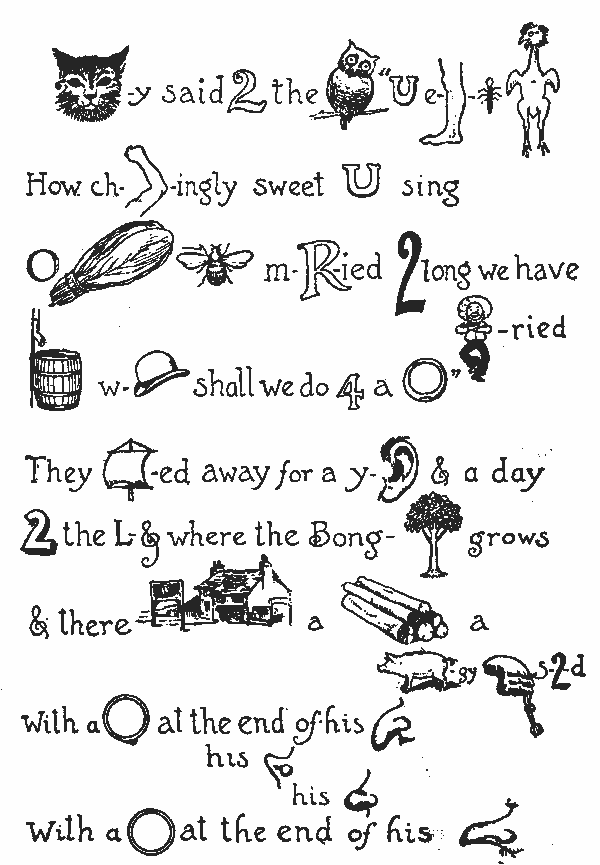 -y said 2 the "U e-
How ch- -ingly sweet U sing
O m-R-ied 2 long we have
-ried
w- shall we do 4 a "
They -ed away for a y- & a day
2 the L-& where the Bong- grows
& there a a
gy s-2-d
With a at the end of his
his
his
With a at the end of his